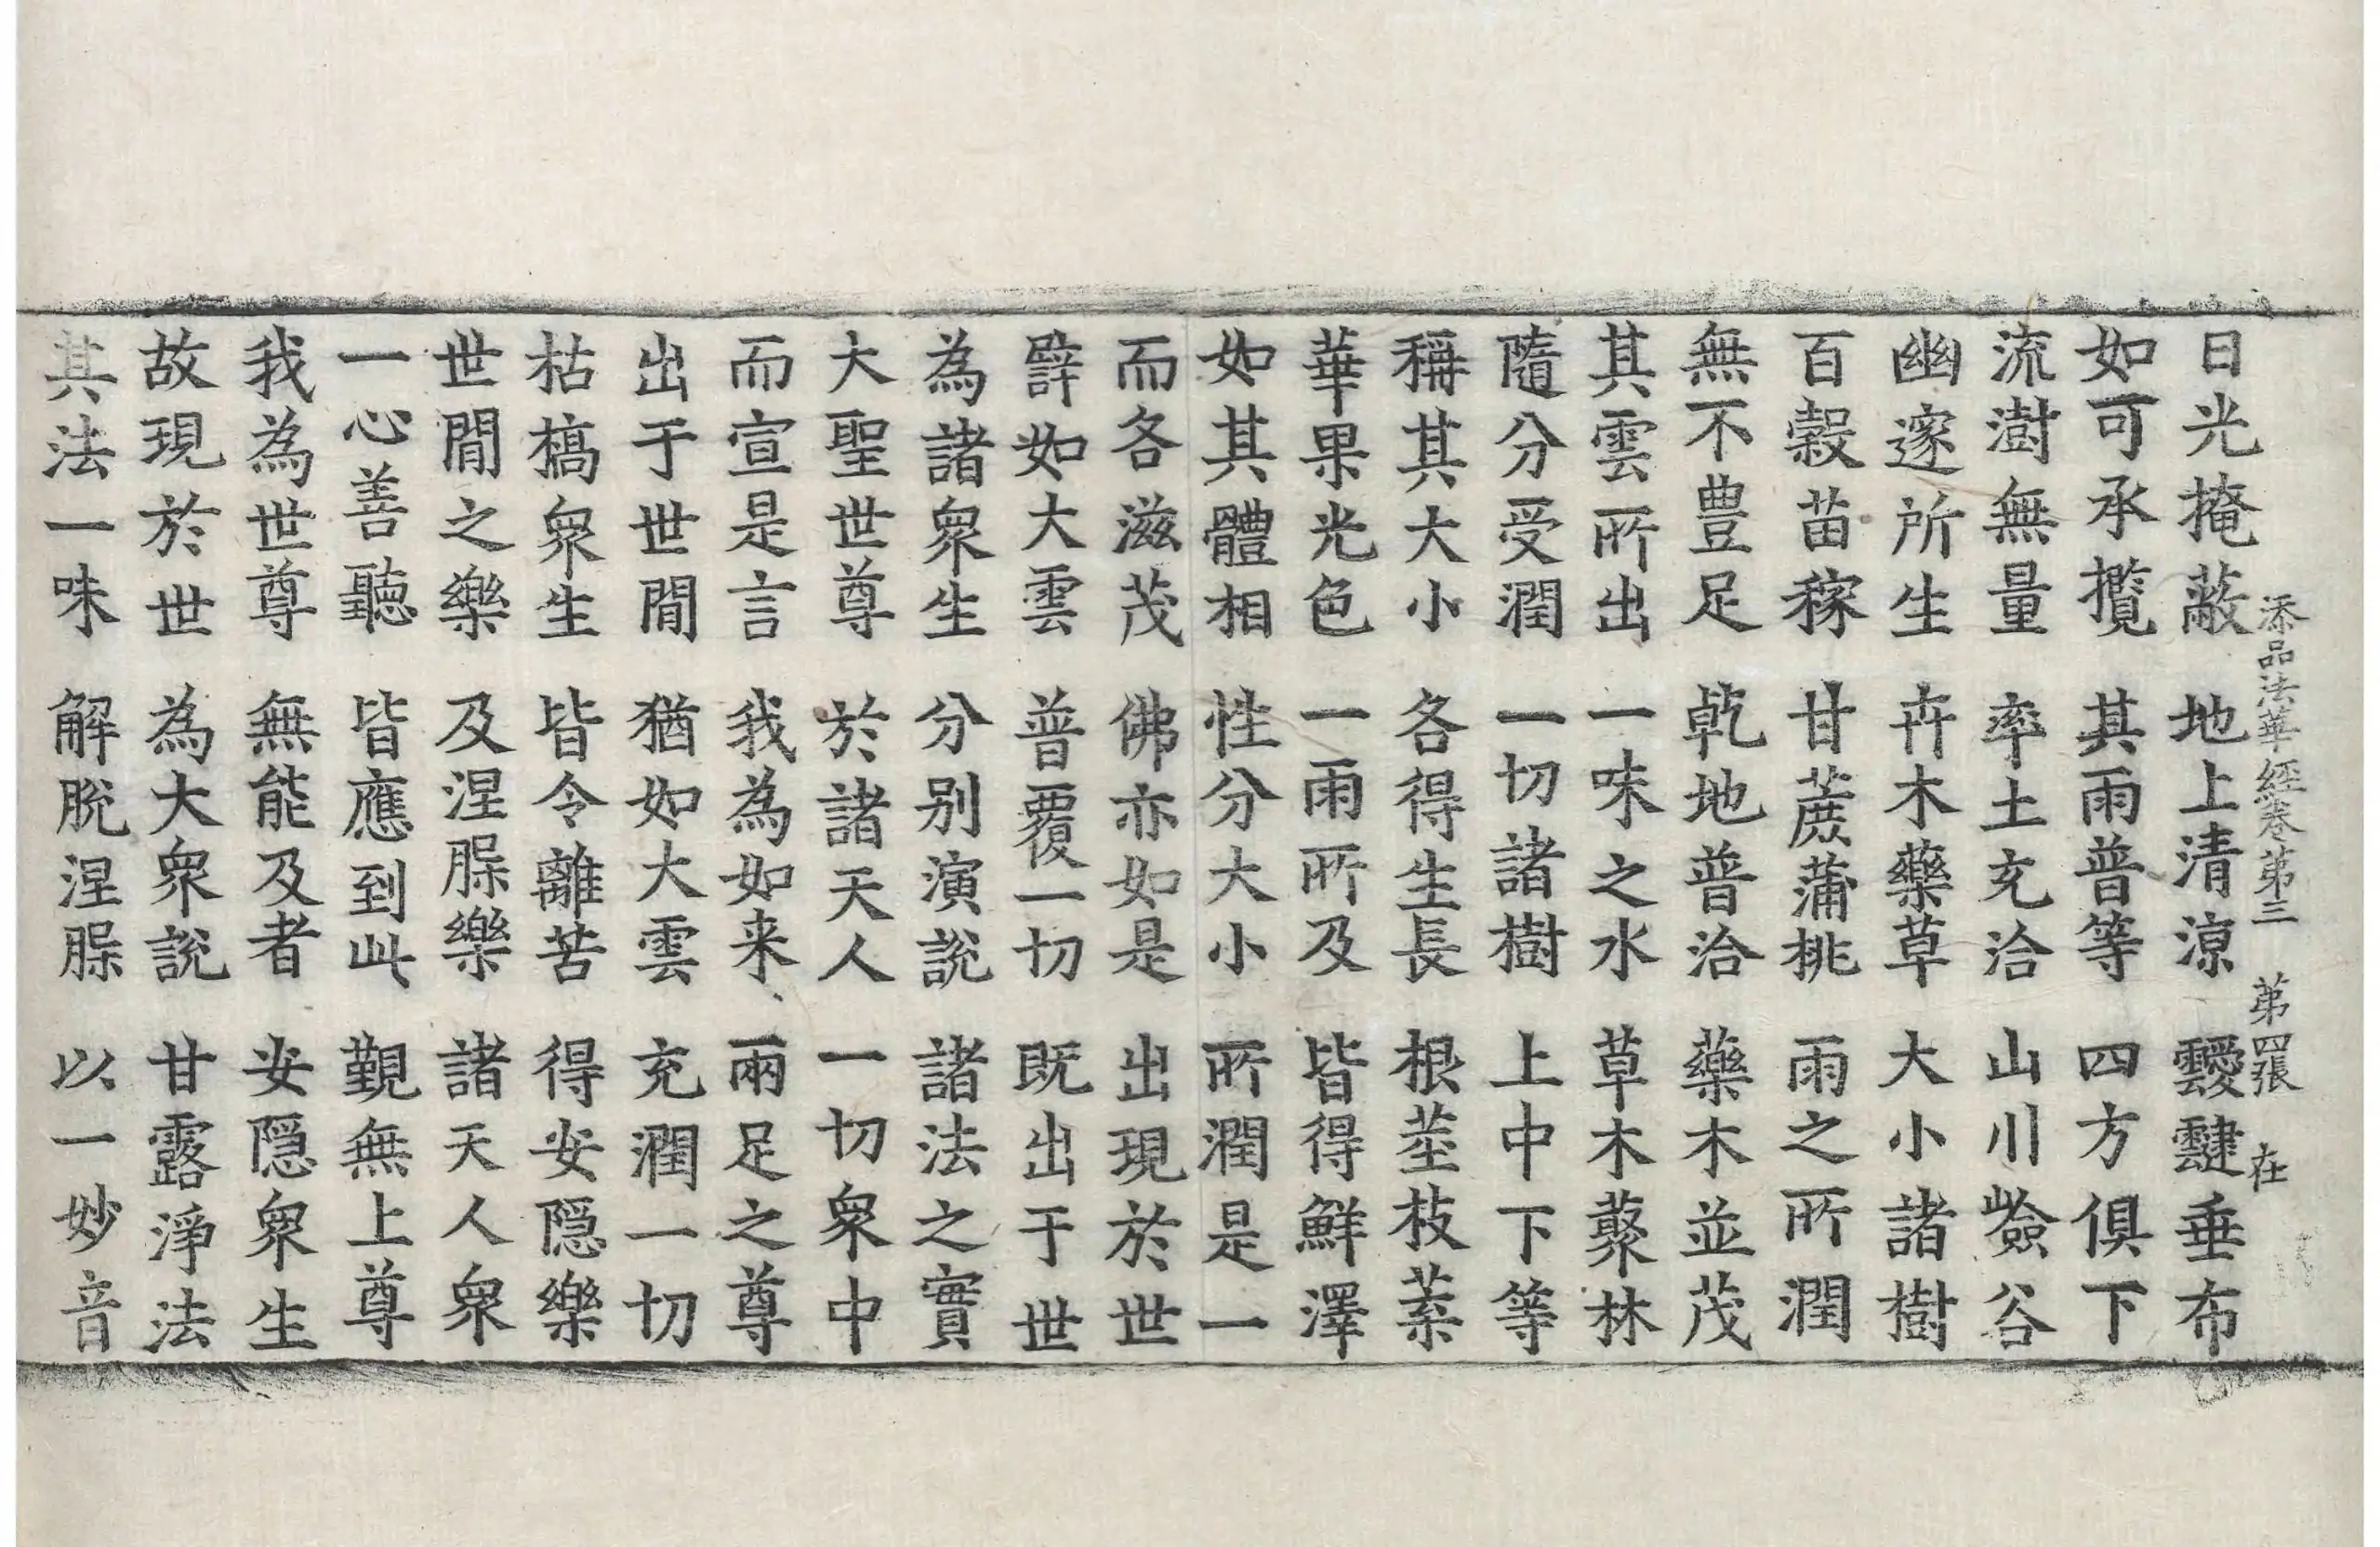 添品法華經卷第三 第四張 在
日光掩蔽 地上清涼 靉靆垂布
如可承攬 其雨普等 四方俱下
流澍無量 率土充洽 山川嶮谷
幽邃所生 卉木藥草 大小諸樹
百穀苗稼 甘蔗蒲桃 雨之所潤
無不豊足 乾地普洽 藥木並茂
其雲所出 一味之水 草木藂林
隨分受潤 一切諸樹 上中下等
稱其大小 各得生長 根莖枝葉
華果光色 一雨所及 皆得鮮澤
如其體相 性分大小 所潤是一
而各滋茂 佛亦如是 出現於世
譬如大雲 普覆一切 既出于世
為諸衆生 分別演說 諸法之實
大聖世尊 於諸天人 一切衆中
而宣是言 我為如来 兩足之尊
出于世間 猶如大雲 充潤一切
枯槁衆生 皆令離苦 得安隱樂
世間之樂 及涅槃樂 諸天人衆
一心善聽 皆應到此 覲無上尊
我為世尊 無能及者 安隱衆生
故現於世 為大衆說 甘露淨法
其法一味 解脫涅槃 以一妙音